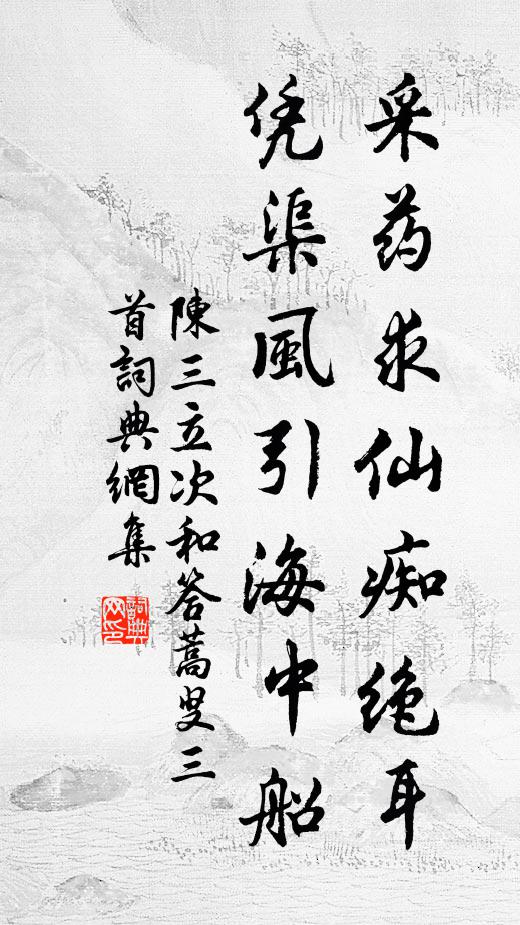 采药求仙痴绝耳
凭渠風引海中船
陳三立次和答蒿叟三
首詞典網集
詞典网印